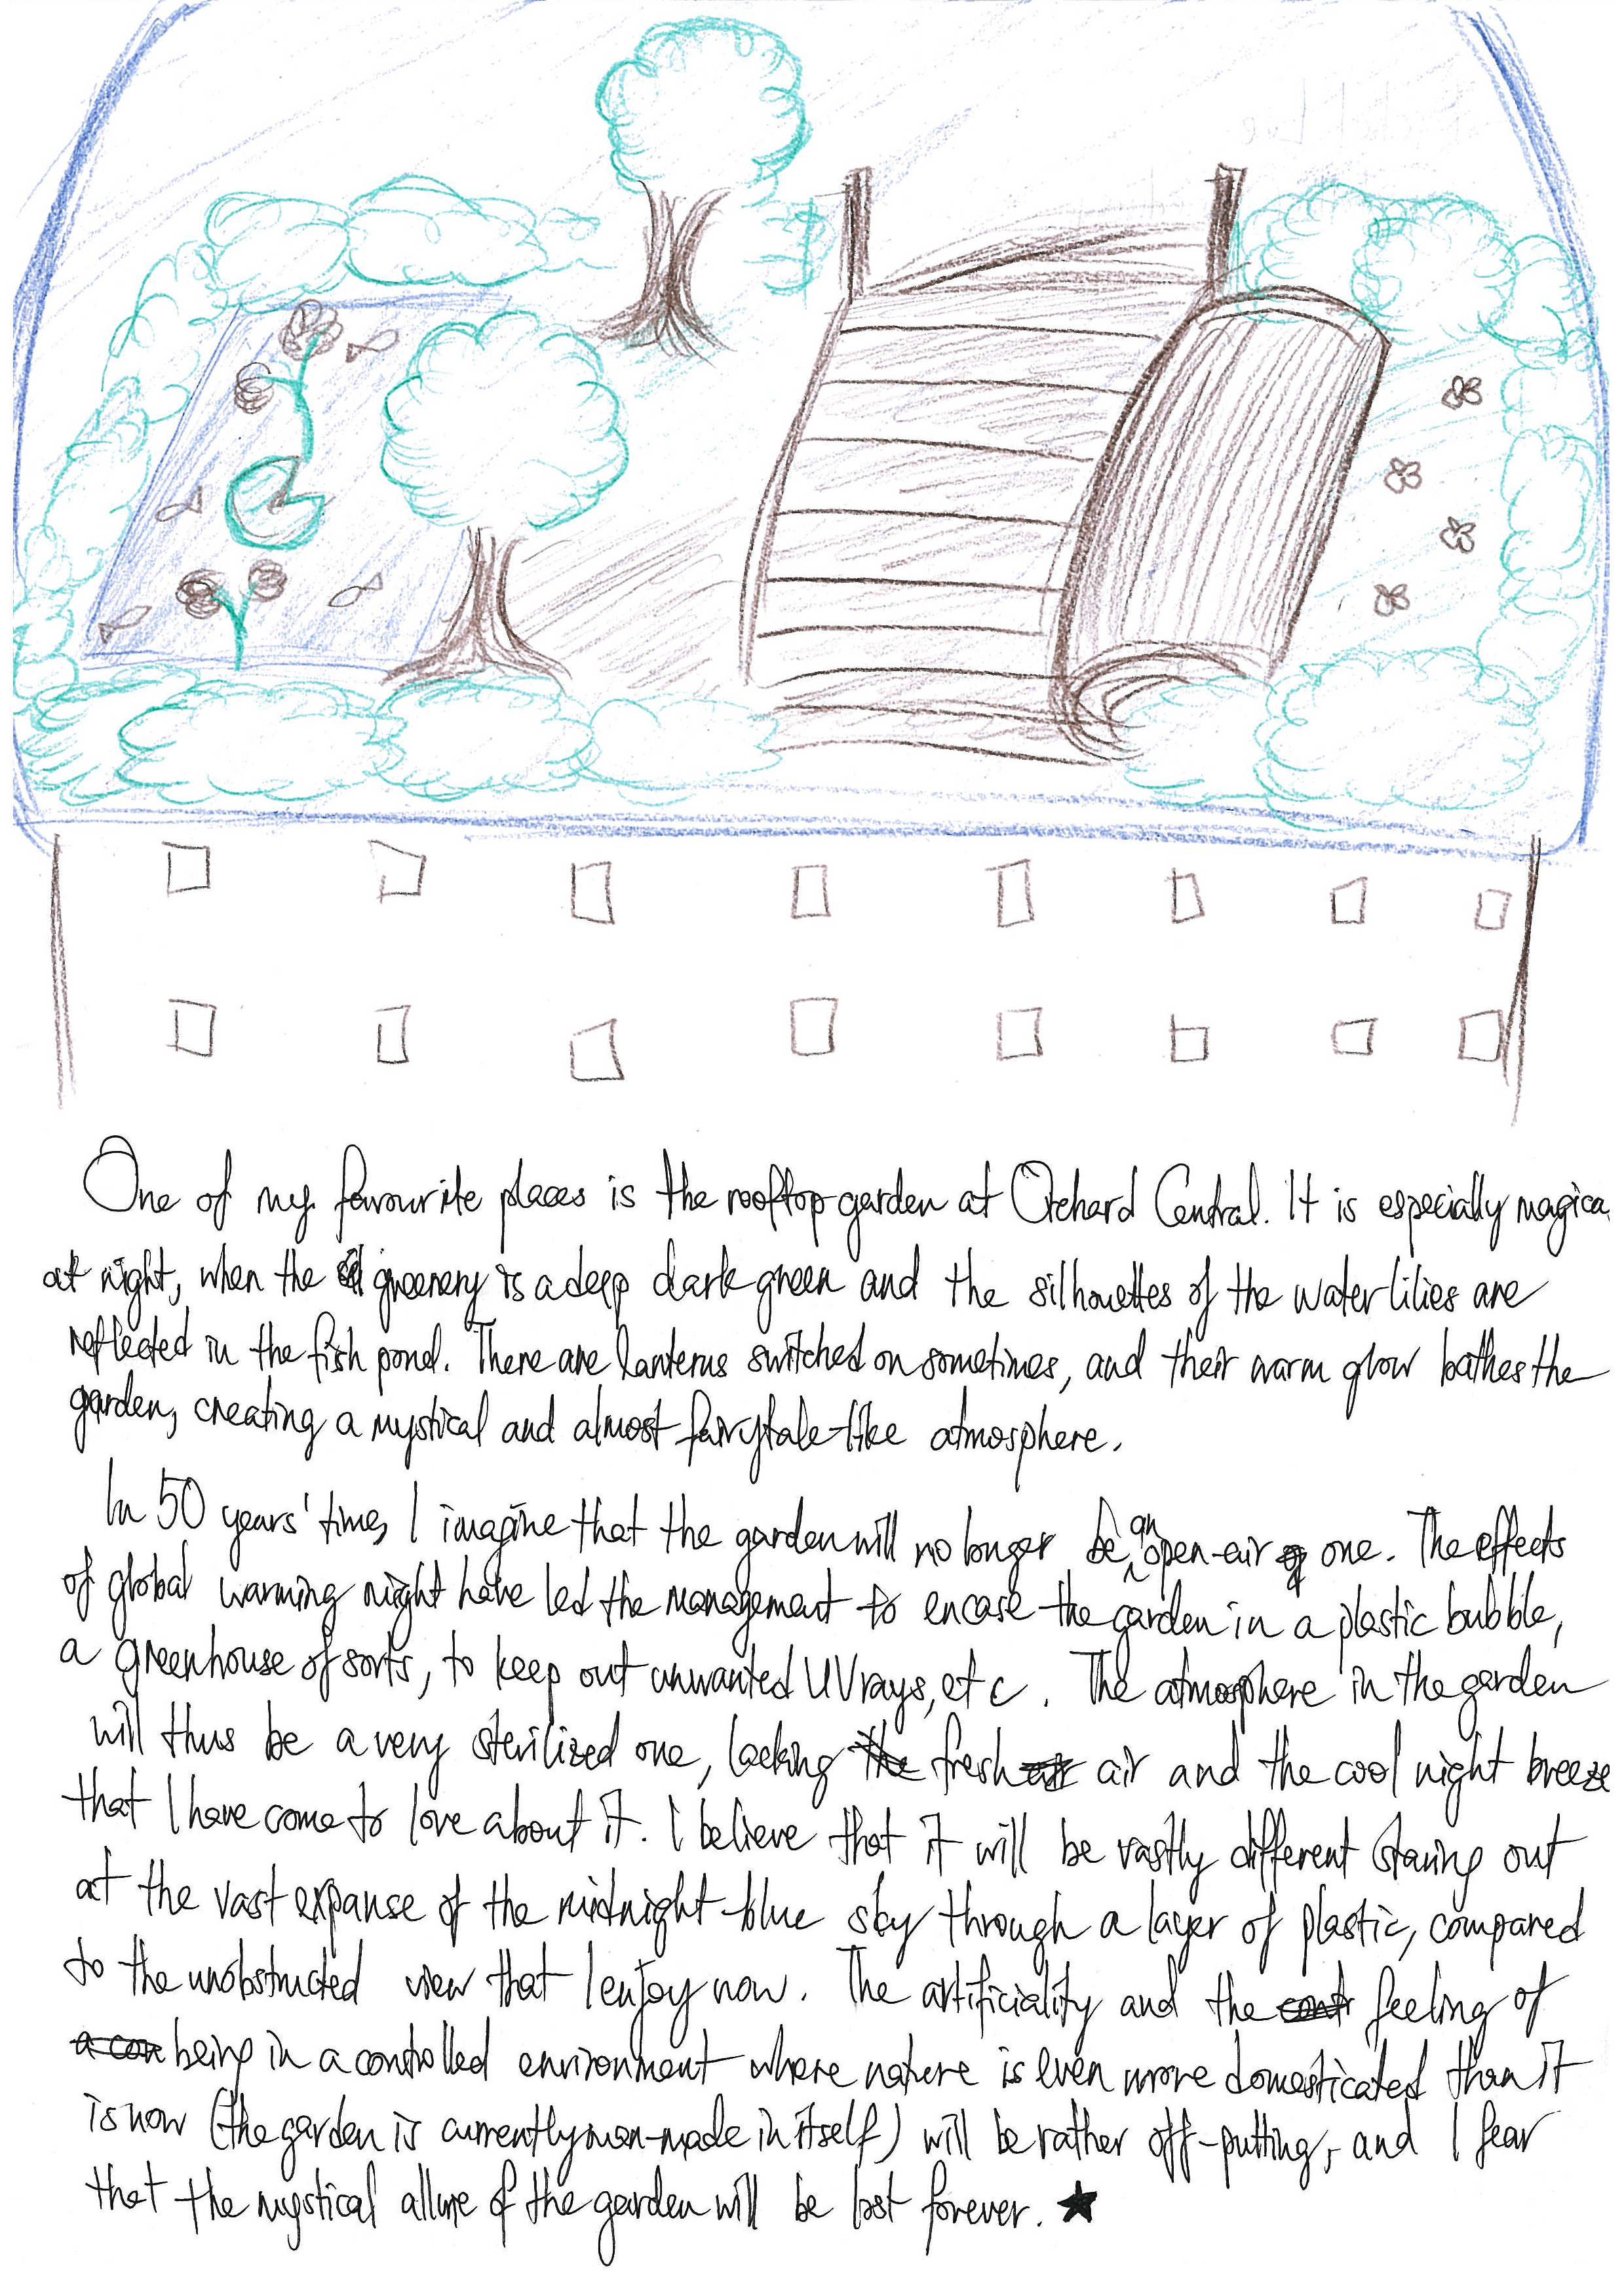 One of my favourite places is the rooftop garden at Orchard Central. It is especially magical
at night, when the greenery is a deep dark green and the silhouettes of the water lilies are
reflected in the fish pond. There are lanterns switched on sometimes, and their warm glow bathes the
garden, creating a mystical and almost fairytale-like atmosphere.
In 50 years' time, I imagine that the garden will no longer be an open-air one. The effects
of global warming might have led the management to encase the garden in a plastic bubble,
a greenhouse of sorts, to keep out unwanted UV rays, etc. The atmosphere in the garden
will thus be a very sterilized one, lacking the fresh air and the cool night breeze
that I have come to love about it. I believe that it will be vastly different staring out
at the vast expanse of the midnight-blue sky through a layer of plastic, compared
to the unobstructed view that I enjoy now. The artificiality and the feeling of
being in a controlled environment where nature is even more domesticated than it
is now (the garden is currently man-made in itself) will be rather off-putting, and I fear
that the mystical allure of the garden will be lost forever. ★